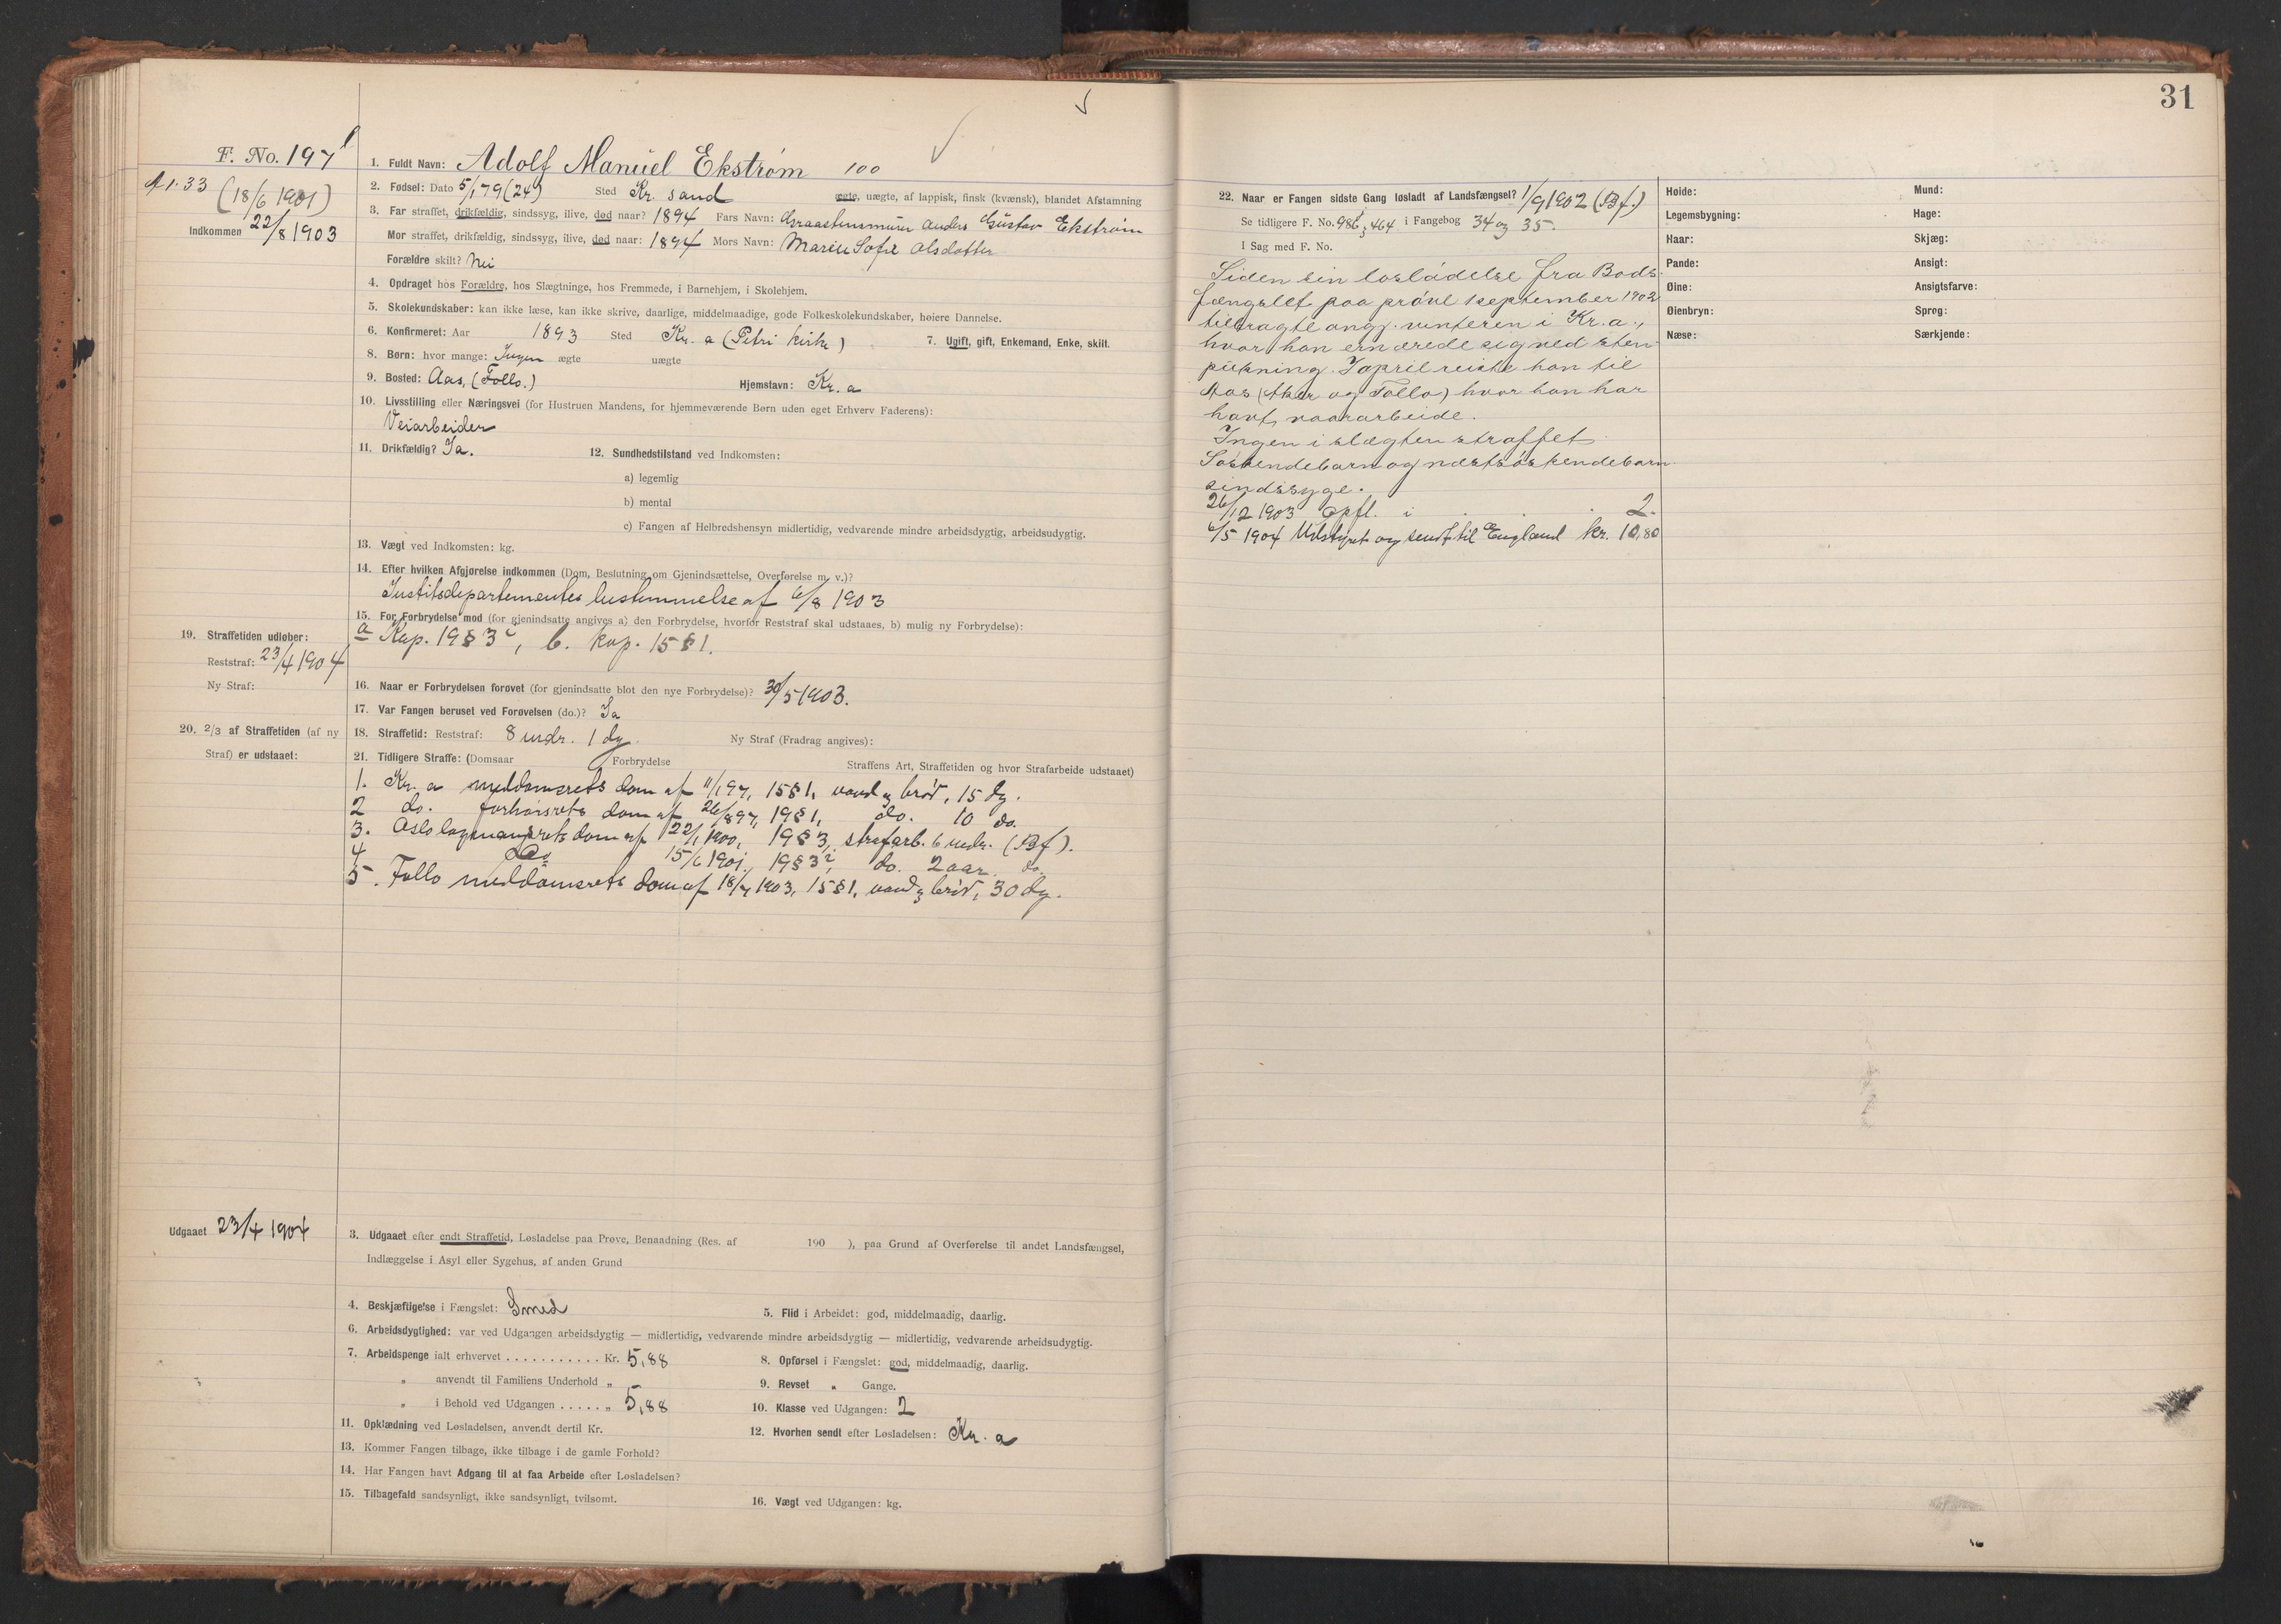 31
F. No. 197
(18/6 1901)
Indkommen 22/8 1903
1. Fuldt Navn: Adolf Manuel Ekstrøm 100
2. Fødsel: Dato 5/1 79 (24) Sted Kr. sand ægte, uægte, af lappisk, finsk (kvænsk), blandet Afstamning
3. Far straffet, drikfældig, sindssyg, ilive, død naar? 1894 Fars Navn: Graastensmurer Anders Gustav Ekstrøm
Mor straffet, drikfældig, sindssyg, ilive, død naar: 1894 Mors Navn: Marie Sofie Olsdatter
Forældre skilt? Nei
4. Opdraget hos Forældre, hos Slægtninge, hos Fremmede, i Barnehjem, i Skolehjem.
5. Skolekundskaber: kan ikke læse, kan ikke skrive, daarlige, middelmaadige, gode Folkeskolekundskaber, høiere Dannelse.
6. Konfirmeret: Aar 1893 Sted Kr. a (Petri kirke) 7. Ugift, gift, Enkemand, Enke, skilt.
8. Børn: hvor mange: Ingen ægte uægte
9. Bosted: Aas, (Follo.) Hjemstavn: Kr. a
10. Livsstilling eller Næringsvei (for Hustruen Mandens, for hjemmeværende Børn uden eget Erhverv Faderens):
Veiarbeider
11. Drikfældig? Ja. 12. Sundhedstilstand ved Indkomsten:
a) legemlig
b) mental
c) Fangen af Helbredshensyn midlertidig, vedvarende mindre arbeidsdygtig, arbeidsudygtig.
13. Vægt ved Indkomsten: kg.
14. Efter hvilken Afgjørelse indkommen (Dom, Beslutning om Gjenindsættelse, Overførelse m. v.)?
Justitsdepartementets bestemmelse af 6/8 1903
15. For Forbrydelse mod (for gjenindsatte angives a) den Forbrydelse, hvorfor Reststraf skal udstaaes, b) mulig ny Forbrydelse):
a Kap. 19 § 3², b. kap. 15 § 1.
19. Straffetiden udløber:
Reststraf: 23/4 1904
Ny Straf:
16. Naar er Forbrydelsen forøvet (for gjenindsatte blot den nye Forbrydelse)? 30/5 1903.
17. Var Fangen beruset ved Forøvelsen (do.)? Ja
20. 2/3 af Straffetiden (af ny
Straf) er udstaaet:
18. Straffetid: Reststraf: 8 mdr. 1 dg. Ny Straf (Fradrag angives):
21. Tidligere Straffe: (Domsaar Forbrydelse Straffens Art, Straffetiden og hvor Strafarbeide udstaaet)
1. Kr. a meddomsrets dom af 11/1 97, 15 § 1, vand & brød, 15 dg.
2 do. forhørsrets dom af 26/8 97, 19 § 1, do. 10 do.
3. Oslo lagmansrets dom af 22/1 1900, 19 § 3, strafarb. 6 mdr. (Bf).
4 do 15/6 1901, 19 § 3², do. 2 aar do.
5. Follo meddomsrets dom af 18/7 1903, 15 § 1, vand & brød, 30 dg.
Udgaaet 23/4 1904
3. Udgaaet efter endt Straffetid, Løsladelse paa Prøve, Benaadning (Res. af 190 ), paa Grund af Overførelse til andet Landsfængsel,
Indlæggelse i Asyl eller Sygehus, af anden Grund
4. Beskjæftigelse i Fængslet: Smed 5. Flid i Arbeidet: god, middelmaadig, daarlig.
6. Arbeidsdygtighed: var ved Udgangen arbeidsdygtig — midlertidig, vedvarende mindre arbeidsdygtig — midlertidig, vedvarende arbeidsudygtig.
7. Arbeidspenge ialt erhvervet ........... Kr. 5,88 8. Opførsel i Fængslet: god, middelmaadig, daarlig.
„ anvendt til Familiens Underhold „ 9. Revset „ Gange.
„ i Behold ved Udgangen ..... „ 5,88 10. Klasse ved Udgangen: 2
11. Opklædning ved Løsladelsen, anvendt dertil Kr. 12. Hvorhen sendt efter Løsladelsen: Kr. a
13. Kommer Fangen tilbage, ikke tilbage i de gamle Forhold?
14. Har Fangen havt Adgang til at faa Arbeide efter Løsladelsen?
15. Tilbagefald sandsynligt, ikke sandsynligt, tvilsomt. 16. Vægt ved Udgangen: kg.
22. Naar er Fangen sidste Gang løsladt af Landsfængsel? 1/9 1902 (Bf.)
Se tidligere F. No. 986 & 464 i Fangebog 34 og 35.
I Sag med F. No.
Siden sin løsladelse fra Bods-
fængslet paa prøve 1 september 1902
tilbragte angj. vinteren i Kr.a.,
hvor han ernærede sig ved sten-
pukning. I april reiste han til
Aas (Aker og Follo) hvor han har
havt vaararbeide.
Ingen i slægten straffet.
Søskendebarn og næstsøskendebarn
sindssyge.
26/12 1903 opfl. i . . . 2.
6/5 1904 Udstyret og sendt til England kr. 10,80
Høide: Mund:
Legemsbygning: Hage:
Haar: Skjæg:
Pande: Ansigt:
Øine: Ansigtsfarve:
Øienbryn: Sprog:
Næse: Særkjende: